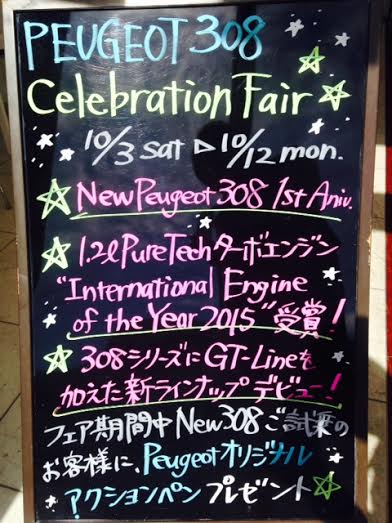 PEUGEOT 308
Celebration Fair
10/3 sat ▷ 10/12 mon.
New Peugeot 308 1st Aniv.
1.2ℓ PureTechターボエンジン
"International Engine
of the Year 2015"受賞!
308シリーズにGT-Lineを
加えた新ラインナップデビュー!
フェア期間中New308ご試乗の
お客様に、Peugeotオリジナル
アクションペンプレゼント